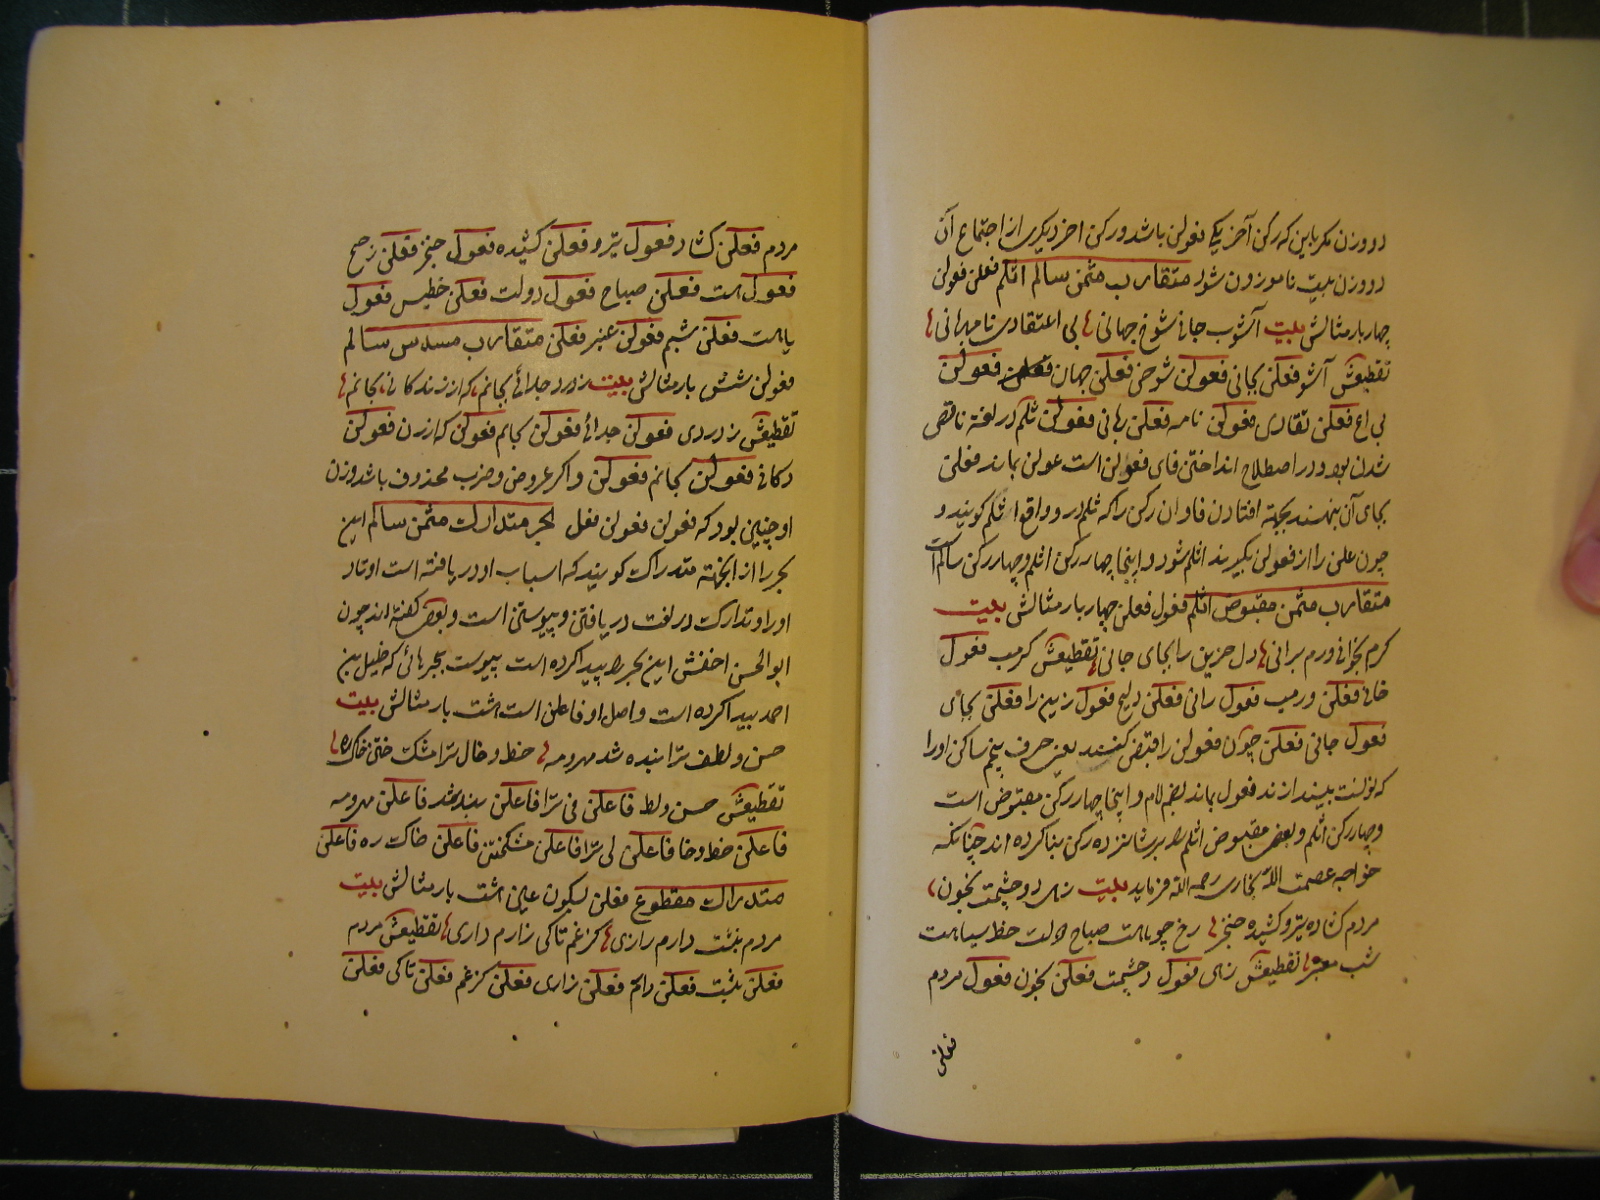 دو وزن مگر باین که رکن آخر یکی فعولن باشد و رکن اخر دیگری از اجتماع آن
دو وزن بیت ناموزون شود متقارب مثمن سالم اثلم فعلن فعولن
چهار بار مثالش بیت آشوب جانی شوخ جهانی بی اعتقادی نامهرانی
تقطیعش آشو فعلن بجانی فعولن شوخی فعلن جهان فعولن
بی اع فعلن تقادی فعولن نامه فعلن بانی فعولن ثلم در لغة ناقص
شدن بود و در اصطلاح انداختن فای فعولن است عولن بماند فعلن
بجای آن بنهند بجهة افتادن فا و ان رکن را که ثلم در و واقع اثلم گویند و
چون علن را از فعولن بگیرند اثلم شود و اینجا چهار رکن اثلم و چهار رکن سالم است
متقارب مثمن مقبوض اثلم فعول فعلن چهار بار مثالش بیت
کرم بخوانی ورم برانی دل حزین را بجای جانی تقطیعش کرمب فعول
خانی فعلن ورمب فعول رانی فعلن دلیح فعول زین را فعلن بجای
فعول جانی فعلن چون فعولن را قبض کنند یعنی حرف پنجم ساکن اورا
که نونست بیندازند فعول بماند بضم لام و اینجا چهار رکن مقبوض است
و چهار رکن اثلم و بعضی مقبوض اثلم را بر شانزده رکن بنا کرده اند چنانکه
خواجه عصمت الله بخاری رحمه الله فرماید بیت زهی دو چشمت بخون
مردم کشاده تیر و کشیده خنجر رخ چو ماهت صباح دولت خط سیاهت
شب معنبر تقطیعش زهی فعول دچشمت فعلن بخون فعول مردم
فعلن
مردم فعلن کشاد فعول تیرو فعلن کشیده فعول خنجر فعلن رخچ
فعول ماهت فعلن صباح فعول دولت فعلن خطیس فعول
یاهت فعلن شبم فعولن عنبر فعلن متقارب مسدس سالم
فعولن شش بار مثالش بیت ز درد جدائی بجانم که از زندگانی بجانم
تقطیعش ز دردی فعولن جدائی فعولن بجانم فعولن که از زن فعولن
دکانی فعولن بجانم فعولن و اگر عروض و ضرب محذوف باشد وزن
او چنین بود که فعولن فعولن فعل بحر متدارک مثمن سالم این
بحر را از انجهة متدارک گویند که اسباب او دریافته است اوتاد
اورا و تدارک در لغت دریافتن و پیوستن است و بعضی گفته اند چون
ابوالحسن اخفش این بحر را پیدا کرده است پیوست ببحرهائی که خلیل بن
احمد پیدا کرده است و اصل او فاعلن است هشت بار مثالش بیت
حسن و لطف ترا بنده شد مهر و مه خط و خال ترا مشک ختن خاک ره
تقطیعش حسن ولط فاعلن فی ترا فاعلن بندشد فاعلن مهرومه
فاعلن خط وخا فاعلن لی ترا فاعلن مشکختن فاعلن خاک ره فاعلن
متدارک مقطوع فعلن بسکون عین هشت بار مثالش بیت
مردم بنشت دارم رازی کز غم تا کی زارم داری تقطیعش مردم
فعلن بنشت فعلن دارم فعلن زاری فعلن کزغم فعلن تا کی فعلن